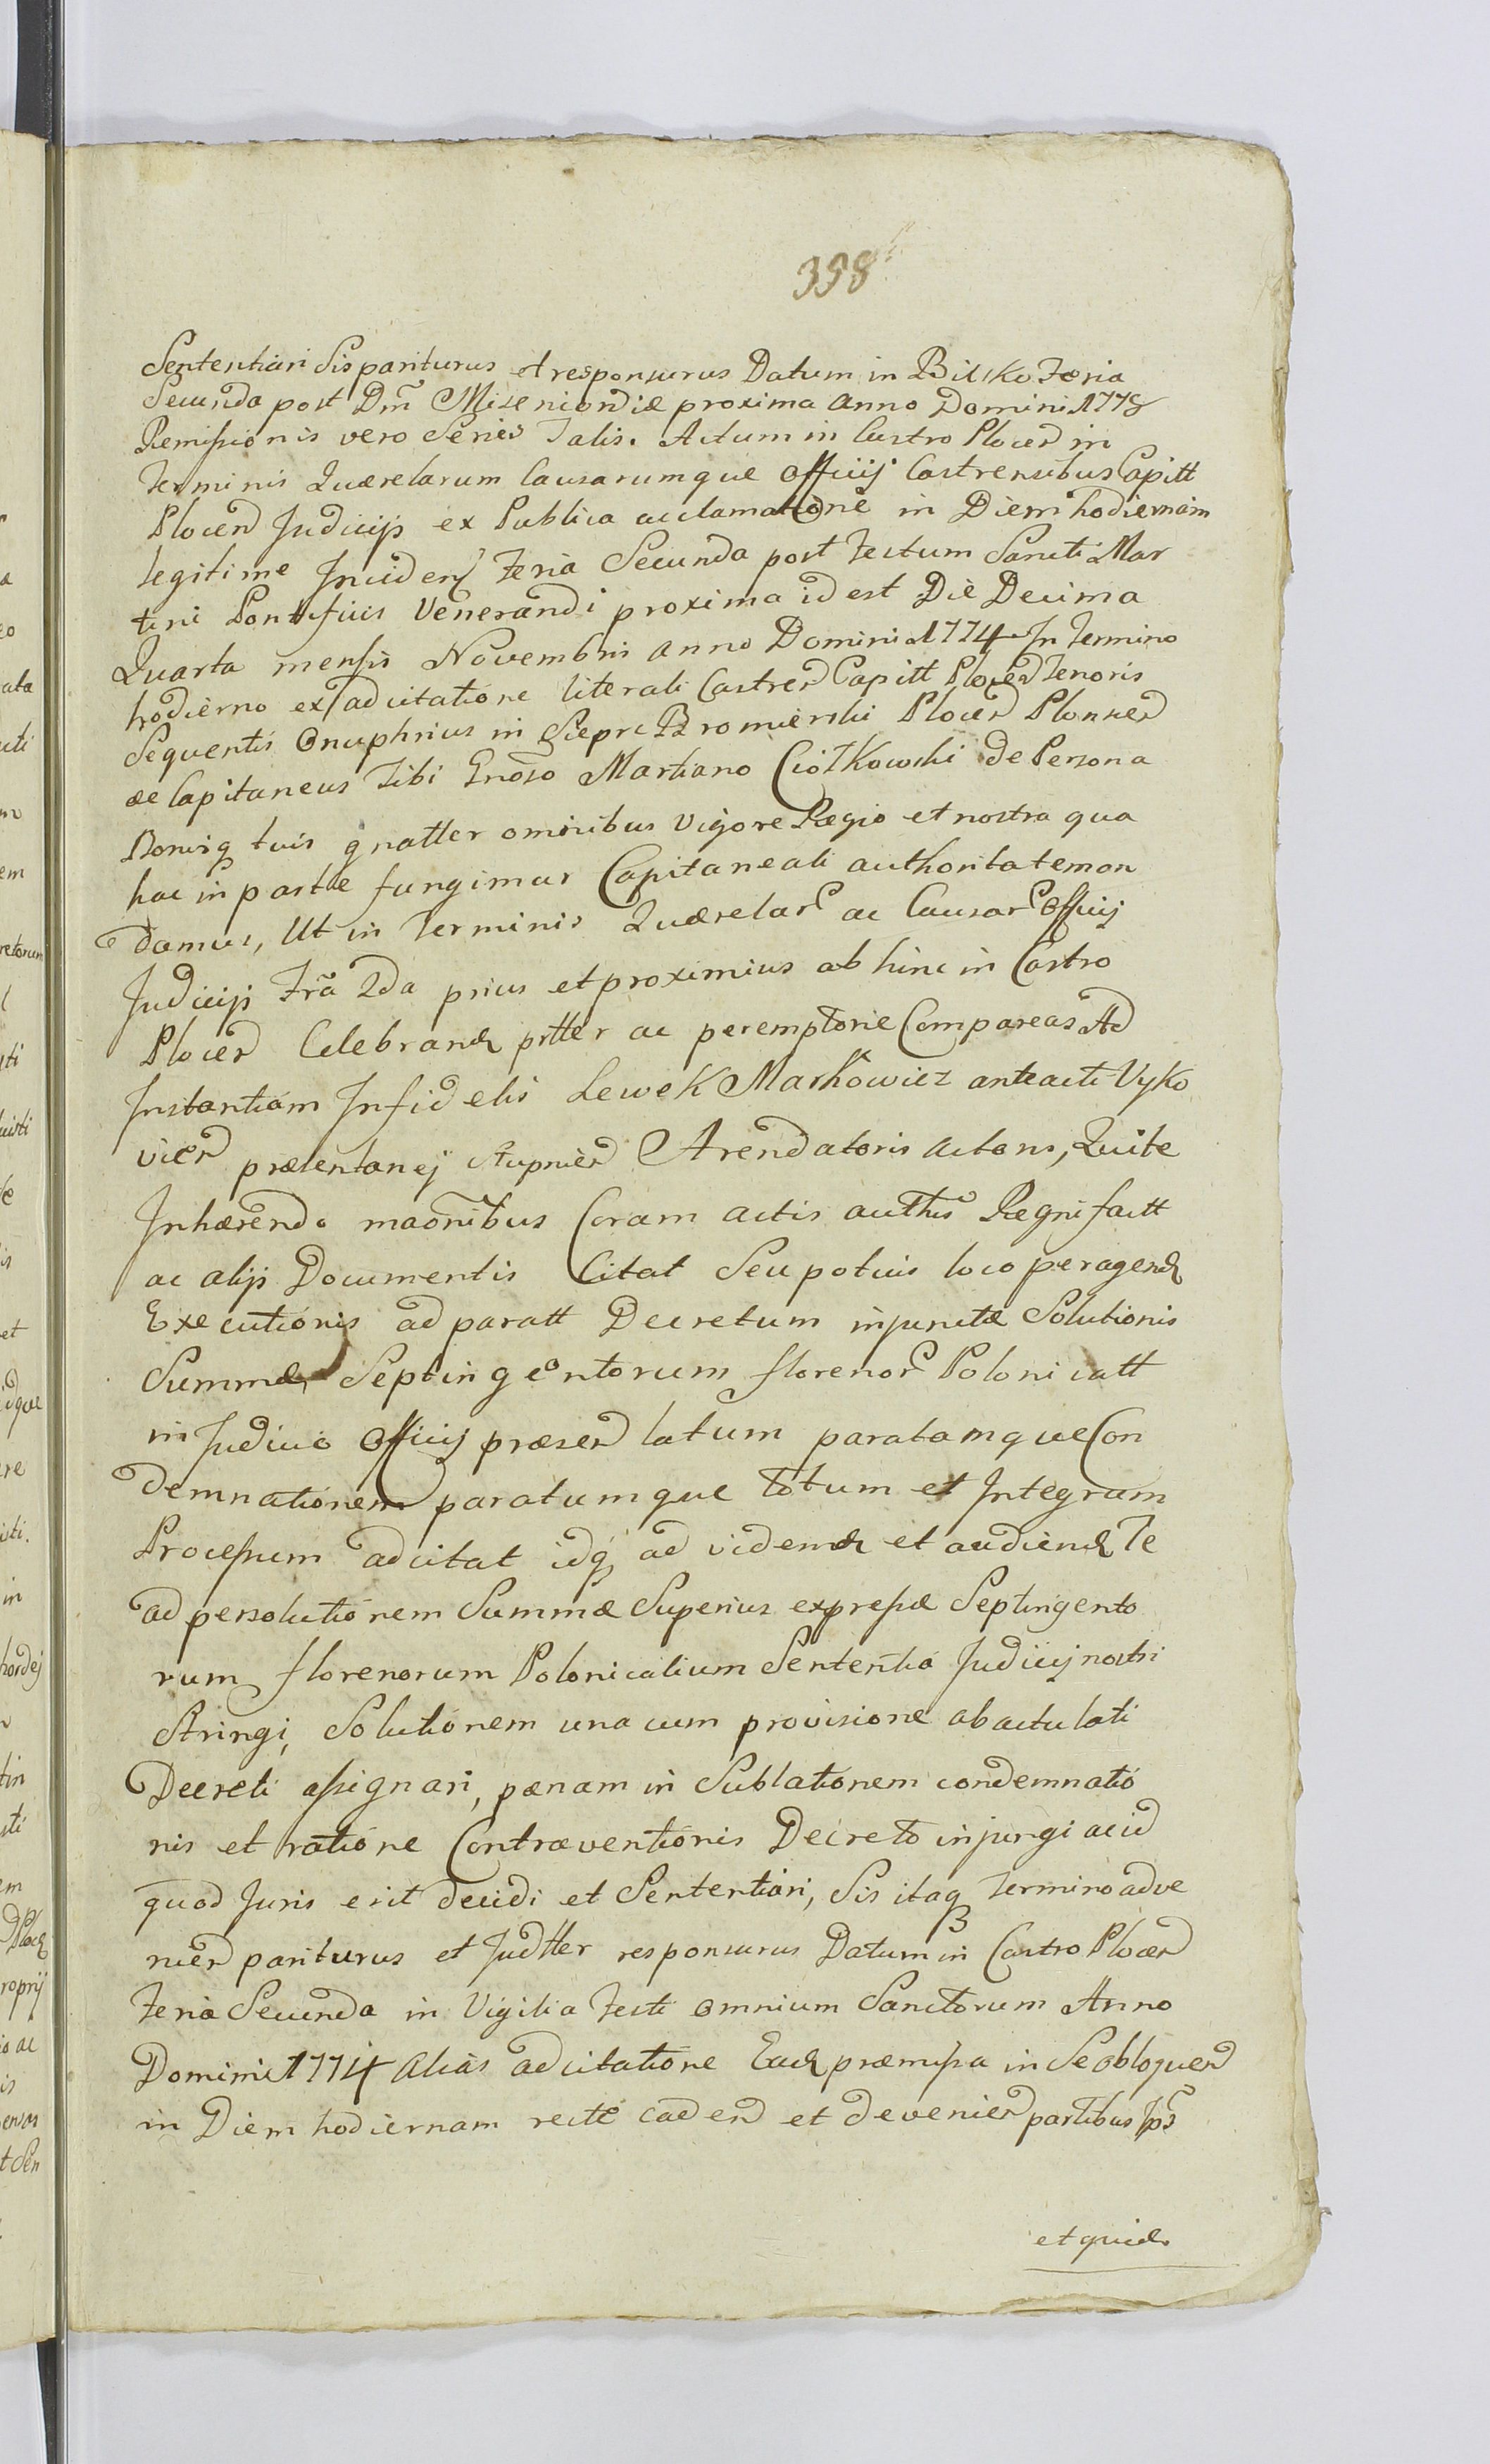 398
Sententiari Sis pariturus et responsurus Datum in Bilsko Feria
Secunda post Dm̄ Misericordiæ proxima Anno Domini 1778
Remissionis vero Series Talis. Actum in Castro Plocen in
Terminis Quærelarum Causarumque Officij Castrensibus Capitt
Plocen Judicijs ex Publica acclamatione in Diem hodiernam
legitime Inciden Feria Secunda post Festum Sancti Mar
tini Pontificis Venerandi proxima id est Die Decima
Quarta mensis Novembris Anno Domini 1774 In Termino
hodierno ex adcitatione literali Castren Capitt Plocen Tenoris
Sequentis Onuphrius in Siepre Bromierski Plocen Plonnen
œ Capitaneus Tibi Gnoso Martiano Ciółkowski De Persona
Bonisq tuis gnatter omnibus Vigore Regio et nostra qua
hac in parte fungimur Capitaneali authoritate man
damus, Ut in Terminis Quærelar ac Causar Officij
Judicijs Fra 2da prius et proximius ab hinc in Castro
Plocen Celebrand prtter ac peremptorie Compareas Ad
Instantiam Infidelis Lewek Markowicz anteacti Vyko
vien prætentanej Stupnien Arendatoris Actoris, Qui te
Inhærendo maonibus Coram actis authis Regni factt
ac alijs Documentis Citat Seu potius loco peragend
Executionis ad paratt Decretum injunctæ Solutionis
Summæ Septingentorum florenor Polonicatt
in Judicio Officij præsen latum paratamque Con
demnationem paratumque totum et Integrum
Processum adcitat idq ad videnđ et audienđ Te
ad persolutionem Summæ Superius expressæ Septingento
rum florenorum Polonicalium Sententia Judicij nostri
Stringi, Solutionem una cum provisione ab actu lati
Decreti assignari, pænam in Sublationem condemnatio
nis et ratione Contraventionis Decreto injungi ac id
quod Juris erit decidi et Sententiari, Sis itaq Termino adve
nien pariturus et Judtter responsurus Datum in Castro Plocen
Feria Secunda in Vigilia Festi Omnium Sanctorum Anno
Domini 1774 Alias adcitatione Ead præmissa in Se obloquen
in Diem hodiernam recte caden et devenien partibus
et quid